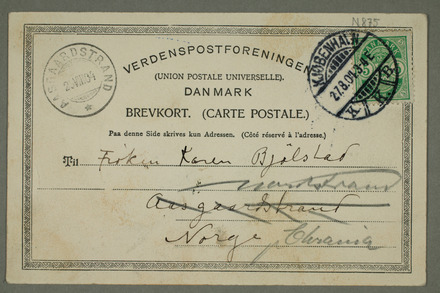 N 875
VERDENSPOSTFORENINGEN
(UNION POSTALE UNIVERSELLE).
DANMARK
BREVKORT. (CARTE POSTALE.)
Paa denne Side skrives kun Adressen. (Côté réservé à l'adresse.)
AASGAARDSTRAND
KJØBENHAVN
27.8.04
K
Til Frøken Karen Bjølstad
Nordstrand
Aasgaardstrand
Norge Chrania